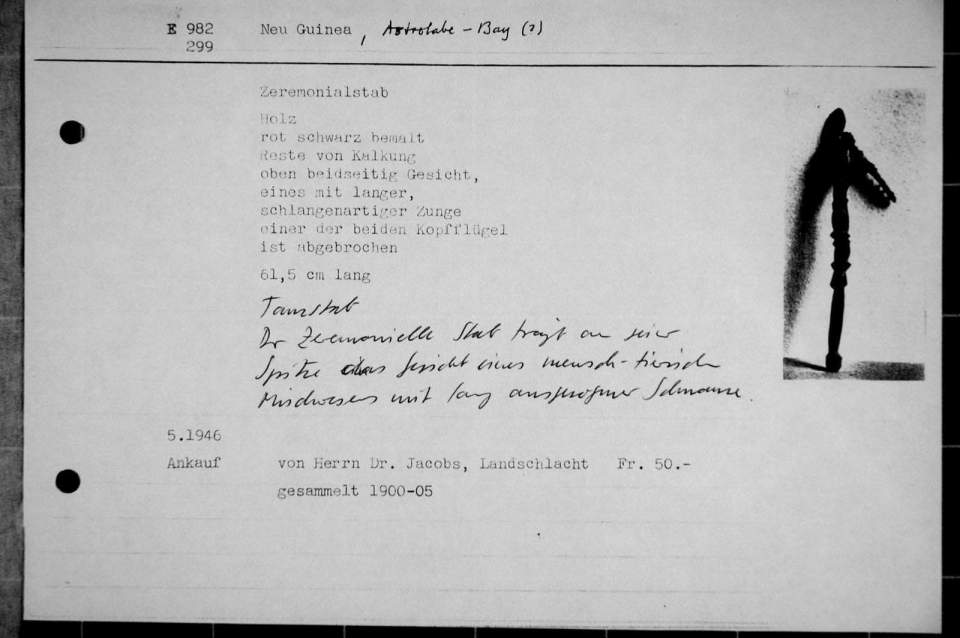 E 982 Neu Guinea, Astrolabe-Bay (?)
299
Zeremonialstab
Holz
rot schwarz bemalt
Reste von Kalkung
oben beidseitig Gesicht,
eines mit langer,
schlangenartiger Zunge
einer der beiden Kopfflügel
ist abgebrochen
61,5 cm lang
Tanzstab
Der Zeremonielle Stab trägt an seier
Spitze das Gesicht eines mensch-tierisch
Mischwesens mit lang ausgezogener Schnauze.
5.1946
Ankauf von Herrn Dr. Jacobs, Landschlacht Fr. 50.-
gesammelt 1900-05